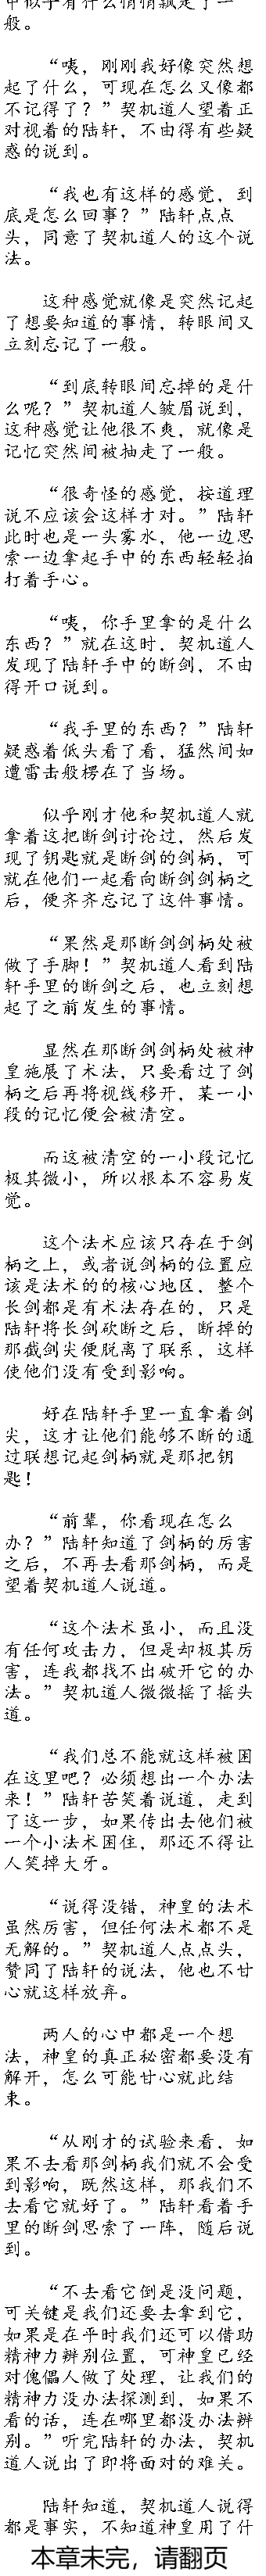 中似乎有什么悄悄飘走了一
般。
“咦，刚刚我好像突然想
起了什么，可现在怎么又像都
不记得了？”契机道人望着正
对视着的陆轩，不由得有些疑
惑的说到。
“我也有这样的感觉，到
底是怎么回事？”陆轩点点
头，同意了契机道人的这个说
法。
这种感觉就像是突然记起
了想要知道的事情，转眼间又
立刻忘记了一般。
“到底转眼间忘掉的是什
么呢？”契机道人皱眉说到，
这种感觉让他很不爽，就像是
记忆突然间被抽走了一般。
“很奇怪的感觉，按道理
说不应该会这样才对。”陆轩
此时也是一头雾水，他一边思
索一边拿起手中的东西轻轻拍
打着手心。
“咦，你手里拿的是什么
东西？”就在这时，契机道人
发现了陆轩手中的断剑，不由
得开口说到。
“我手里的东西？”陆轩
疑惑着低头看了看，猛然间如
遭雷击般楞在了当场。
似乎刚才他和契机道人就
拿着这把断剑讨论过，然后发
现了钥匙就是断剑的剑柄，可
就在他们一起看向断剑剑柄之
后，便齐齐忘记了这件事情。
“果然是那断剑剑柄处被
做了手脚！”契机道人看到陆
轩手里的断剑之后，也立刻想
起了之前发生的事情。
显然在那断剑剑柄处被神
皇施展了术法，只要看过了剑
柄之后再将视线移开，某一小
段的记忆便会被清空。
而这被清空的一小段记忆
极其微小，所以根本不容易发
觉。
这个法术应该只存在于剑
柄之上，或者说剑柄的位置应
该是法术的的核心地区，整个
长剑都是有术法存在的，只是
陆轩将长剑砍断之后，断掉的
那截剑尖便脱离了联系，这样
使他们没有受到影响。
好在陆轩手里一直拿着剑
尖，这才让他们能够不断的通
过联想记起剑柄就是那把钥
匙！
“前辈，你看现在怎么
办？”陆轩知道了剑柄的厉害
之后，不再去看那剑柄，而是
望着契机道人说道。
“这个法术虽小，而且没
有任何攻击力，但是却极其厉
害，连我都找不出破开它的办
法。”契机道人微微摇了摇头
道。
“我们总不能就这样被困
在这里吧？必须想出一个办法
来！”陆轩苦笑着说道，走到
了这一步，如果传出去他们被
一个小法术困住，那还不得让
人笑掉大牙。
“说得没错，神皇的法术
虽然厉害，但任何法术都不是
无解的。”契机道人点点头，
赞同了陆轩的说法，他也不甘
心就这样放弃。
两人的心中都是一个想
法，神皇的真正秘密都要没有
解开，怎么可能甘心就此结
束。
“从刚才的试验来看，如
果不去看那剑柄我们就不会受
到影响，既然这样，那我们不
去看它就好了。”陆轩看着手
里的断剑思索了一阵，随后说
到。
“不去看它倒是没问题，
可关键是我们还要去拿到它，
如果是在平时我们还可以借助
精神力辨别位置，可神皇已经
对傀儡人做了处理，让我们的
精神力没办法探测到，如果不
看的话，连在哪里都没办法辨
别。”听完陆轩的办法，契机
道人说出了即将面对的难关。
陆轩知道，契机道人说得
都是事实，不知道神皇用了什
本章未完，请翻页